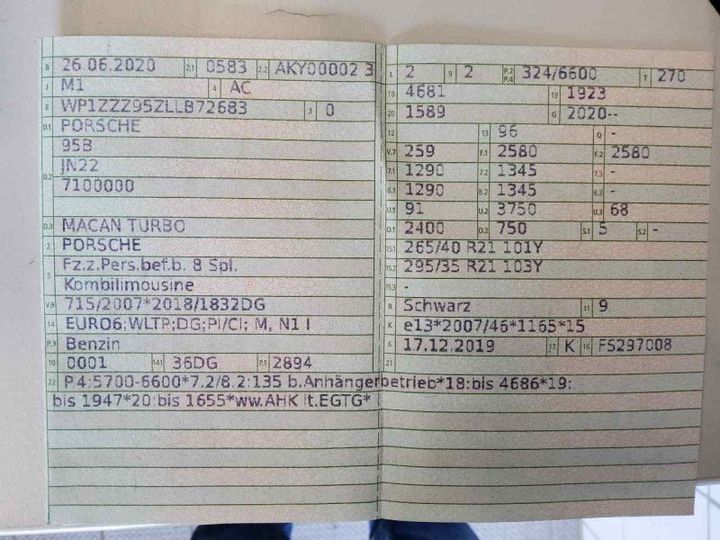 B 26.06.2020 2.1 0583 2.2 AKY00002 3
J M1 4 AC
E WP1ZZZ95ZLLB72683 3 0
D.1 PORSCHE
95B
D.2 JN22
7100000
D.3 MACAN TURBO
2 PORSCHE
5 Fz.z.Pers.bef.b. 8 Spl.
Kombilimousine
V.9 715/2007*2018/1832DG
14 EURO6;WLTP;DG;PI/CI; M, N1 I
P.3 Benzin
10 0001 14.1 36DG P.1 2894
22 P.4:5700-6600*7.2/8.2:135 b.Anhängerbetrieb*18:bis 4686*19:
bis 1947*20:bis 1655*ww.AHK lt.EGTG*
L 2 9 2 P.2 P.4 324/6600 T 270
18 4681 19 1923
20 1589 G 2020--
12 13 96 Q -
V.7 259 F.1 2580 F.2 2580
7.1 1290 7.2 1345 7.3 -
8.1 1290 8.2 1345 8.3 -
U.1 91 U.2 3750 U.3 68
O.1 2400 O.2 750 S.1 5 S.2 -
15.1 265/40 R21 101Y
15.2 295/35 R21 103Y
15.3 -
R Schwarz 11 9
K e13*2007/46*1165*15
6 17.12.2019 17 K 16 FS297008
21